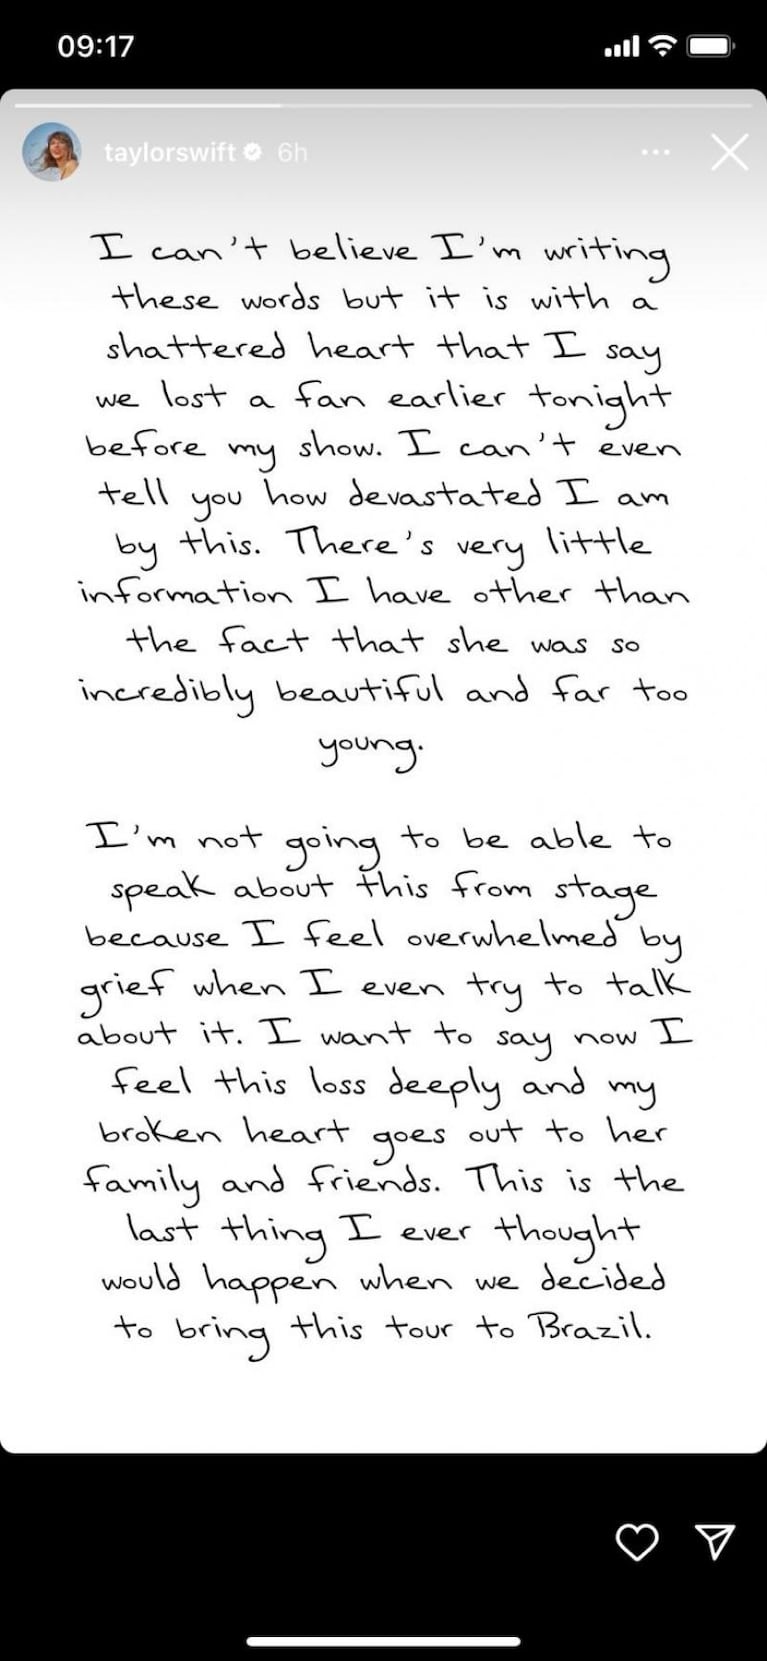 09:17
taylorswift 6h
I can't believe I'm writing
these words but it is with a
shattered heart that I say
we lost a fan earlier tonight
before my show. I can't even
tell you how devastated I am
by this. There's very little
information I have other than
the fact that she was so
incredibly beautiful and far too
young.
I'm not going to be able to
speak about this from stage
because I feel overwhelmed by
grief when I even try to talk
about it. I want to say now I
feel this loss deeply and my
broken heart goes out to her
family and friends. This is the
last thing I ever thought
would happen when we decided
to bring this tour to Brazil.